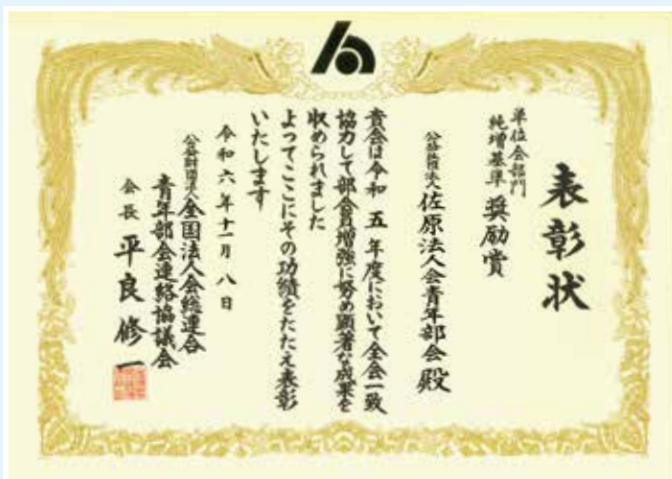 表彰状
単位会部門
純増基準 奨励賞
公益社団法人 佐原法人会青年部会 殿
貴会は令和 五 年度において全会一致
協力して部会員増強に努め顕著な成果を
収められました
よってここにその功績をたたえ表彰
いたします
令和六年十一月 八 日
公益財団法人 全国法人会総連合
青年部会連絡協議会
会長 平良修一